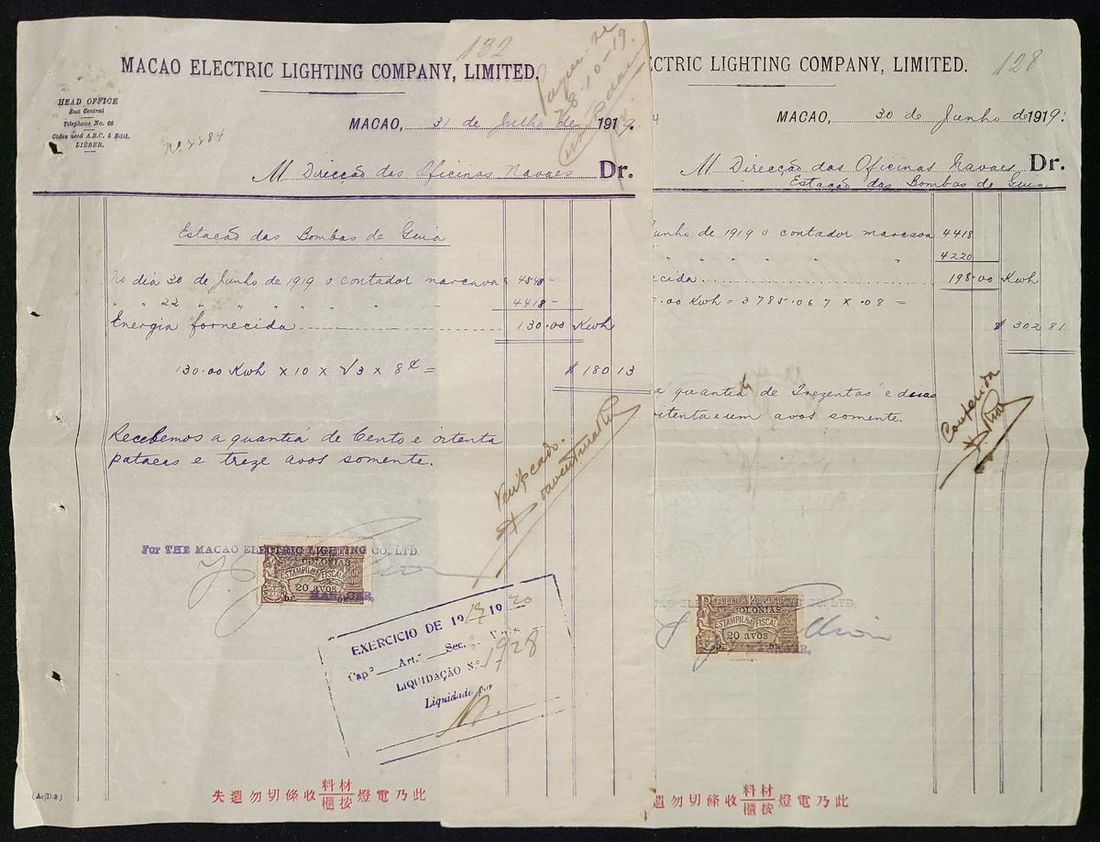 132
Pague-se
8-10-19.
MACAO ELECTRIC LIGHTING COMPANY, LIMITED.
HEAD OFFICE
Rua Central
Telephone No. 66
Codes used A.B.C. 5 Edit.
LIEBER.
No. 2284
MACAO, 31 de Julho de 1919.
M Direcção das Oficinas Navaes Dr.
Estação das Bombas de Guia
No dia 30 de Junho de 1919 o contador marcava 4548-
" " 22 " " " " " 4418-
Energia fornecida 130.00 Kwh
130.00 Kwh × 10 × √3 × 8¢ = $ 180 13
Recebemos a quantia de Cento e oitenta
patacas e treze avos somente.
Verificado.
For THE MACAO ELECTRIC LIGHTING CO., LTD.
COLONIAS
ESTAMPILHA FISCAL
20 avos
MANAGER,
EXERCICIO DE 1919 1920
Cap.º Art.º Sec.
LIQUIDAÇÃO N.º 1928
Liquidado por
此乃電燈材料按櫃收條切勿遺失
128
CTRIC LIGHTING COMPANY, LIMITED.
MACAO, 30 de Junho de 1919.
M Direcção das Oficinas Navaes Dr.
Estação das Bombas de Guia
unho de 1919 o contador marcava 4418
" " " " " 4220
ecida 198.00 Kwh
.00 Kwh = 3785.067 × .08 =
$ 302 81
a quantia de Trezentas e duas
oitenta e um avos somente.
Conferida
CO., LTD.
COLONIAS
ESTAMPILHA FISCAL
20 avos
此乃電燈材料按櫃收條切勿遺